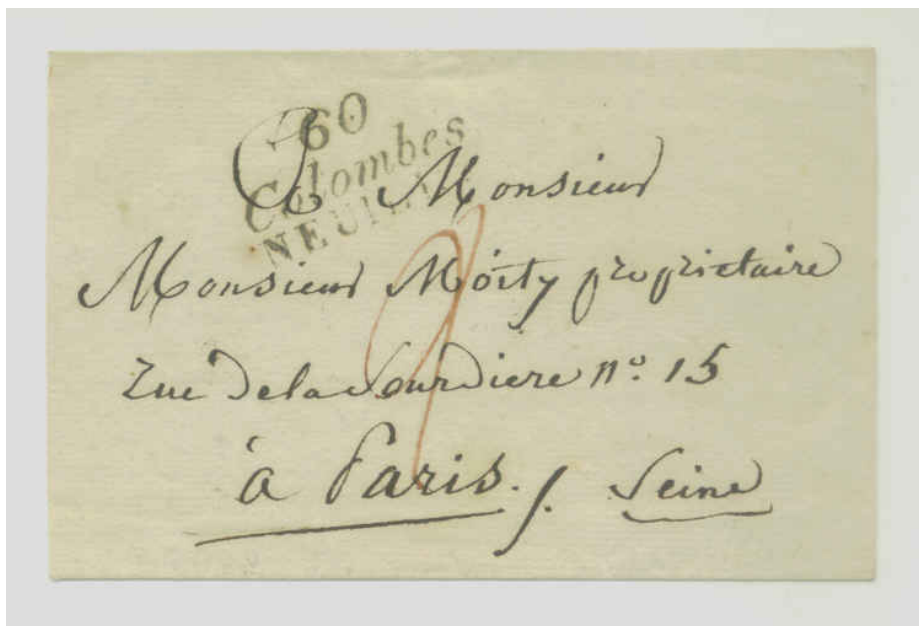 60
Colombes
NEUILLY
A Monsieur
Monsieur Moity propriétaire
rue de la Sourdiere n.º 15
à Paris. /. Seine